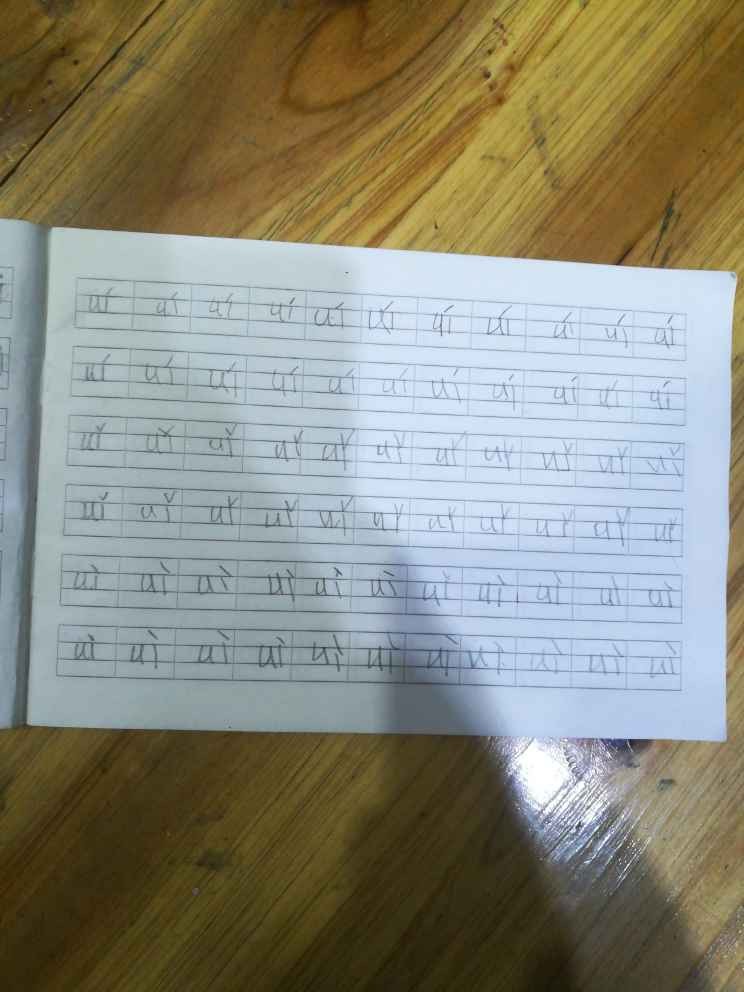 uí uí uí uí uí uí uí uí uí uí uí
uí uí uí uí uí uí uí uí uí uí uí
uǐ uǐ uǐ uǐ uǐ uǐ uǐ uǐ uǐ uǐ uǐ
uǐ uǐ uǐ uǐ uǐ uǐ uǐ uǐ uǐ uǐ uǐ
uì uì uì uì uì uì uì uì uì uì uì
uì uì uì uì uì uì uì uì uì uì uì